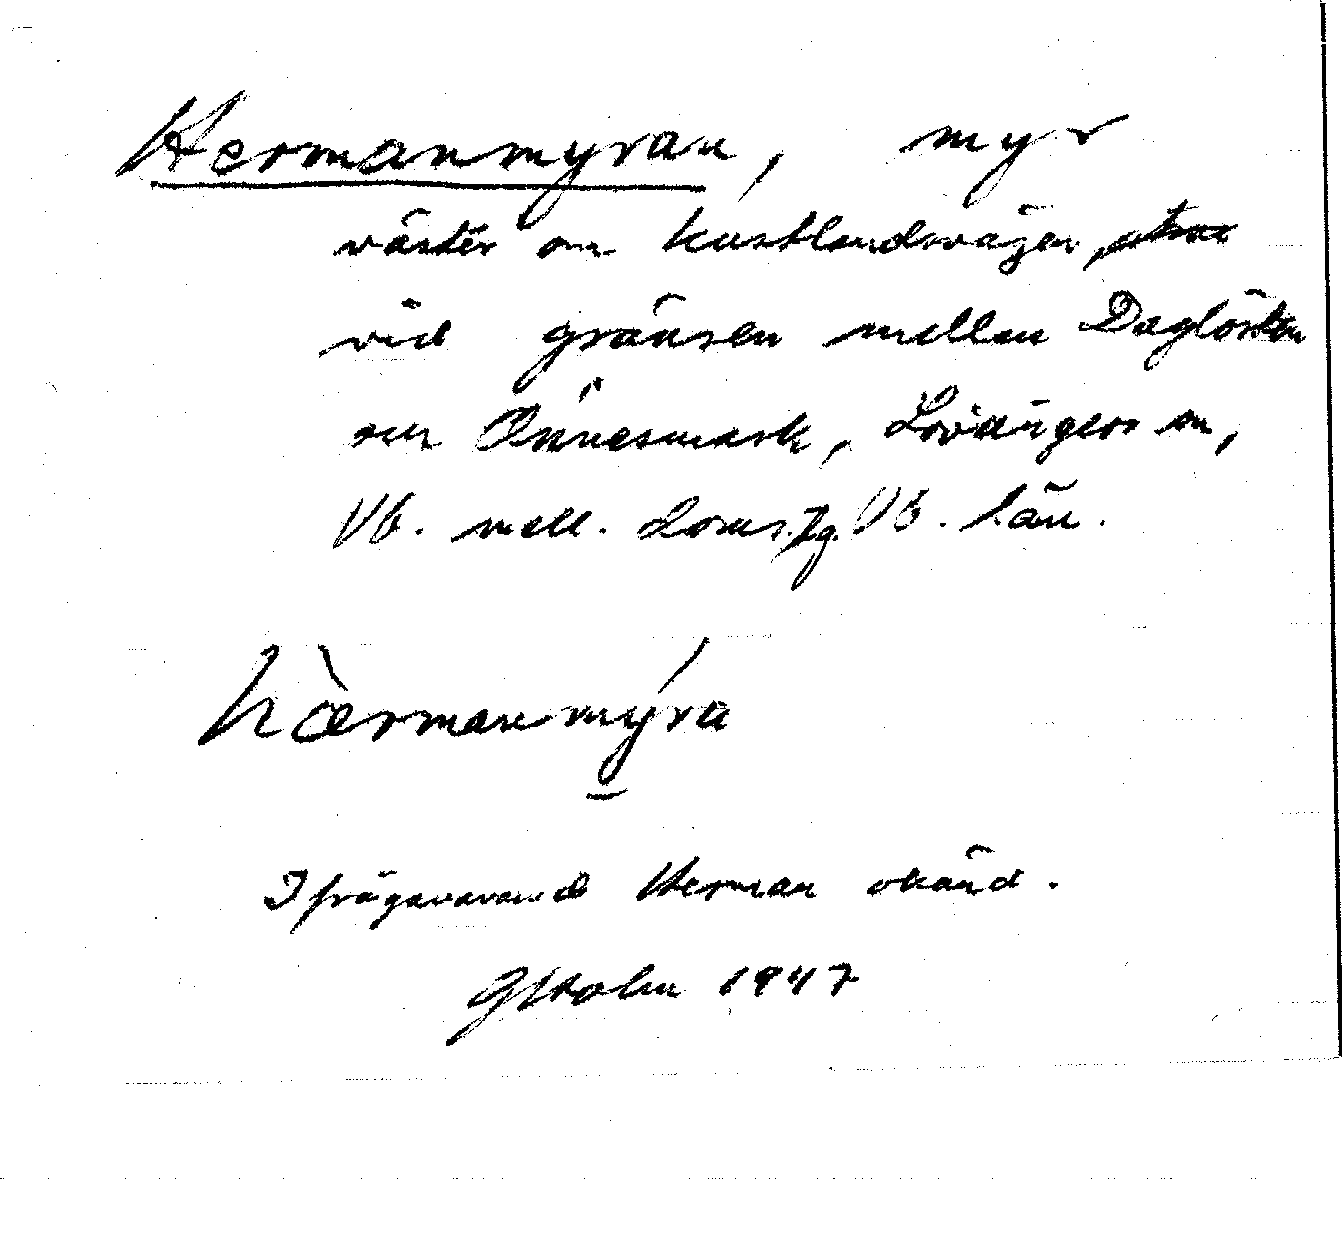 Hermanmyran, myr
väster om kustlandsvägen,
vid gränsen mellan Daglösten
och Önnesmark, Lövångers sn,
Vb. mell. doms.fg. Vb. län.
hàermanmýra
Ifrågavarande Herman okänd.
GHolm 1947